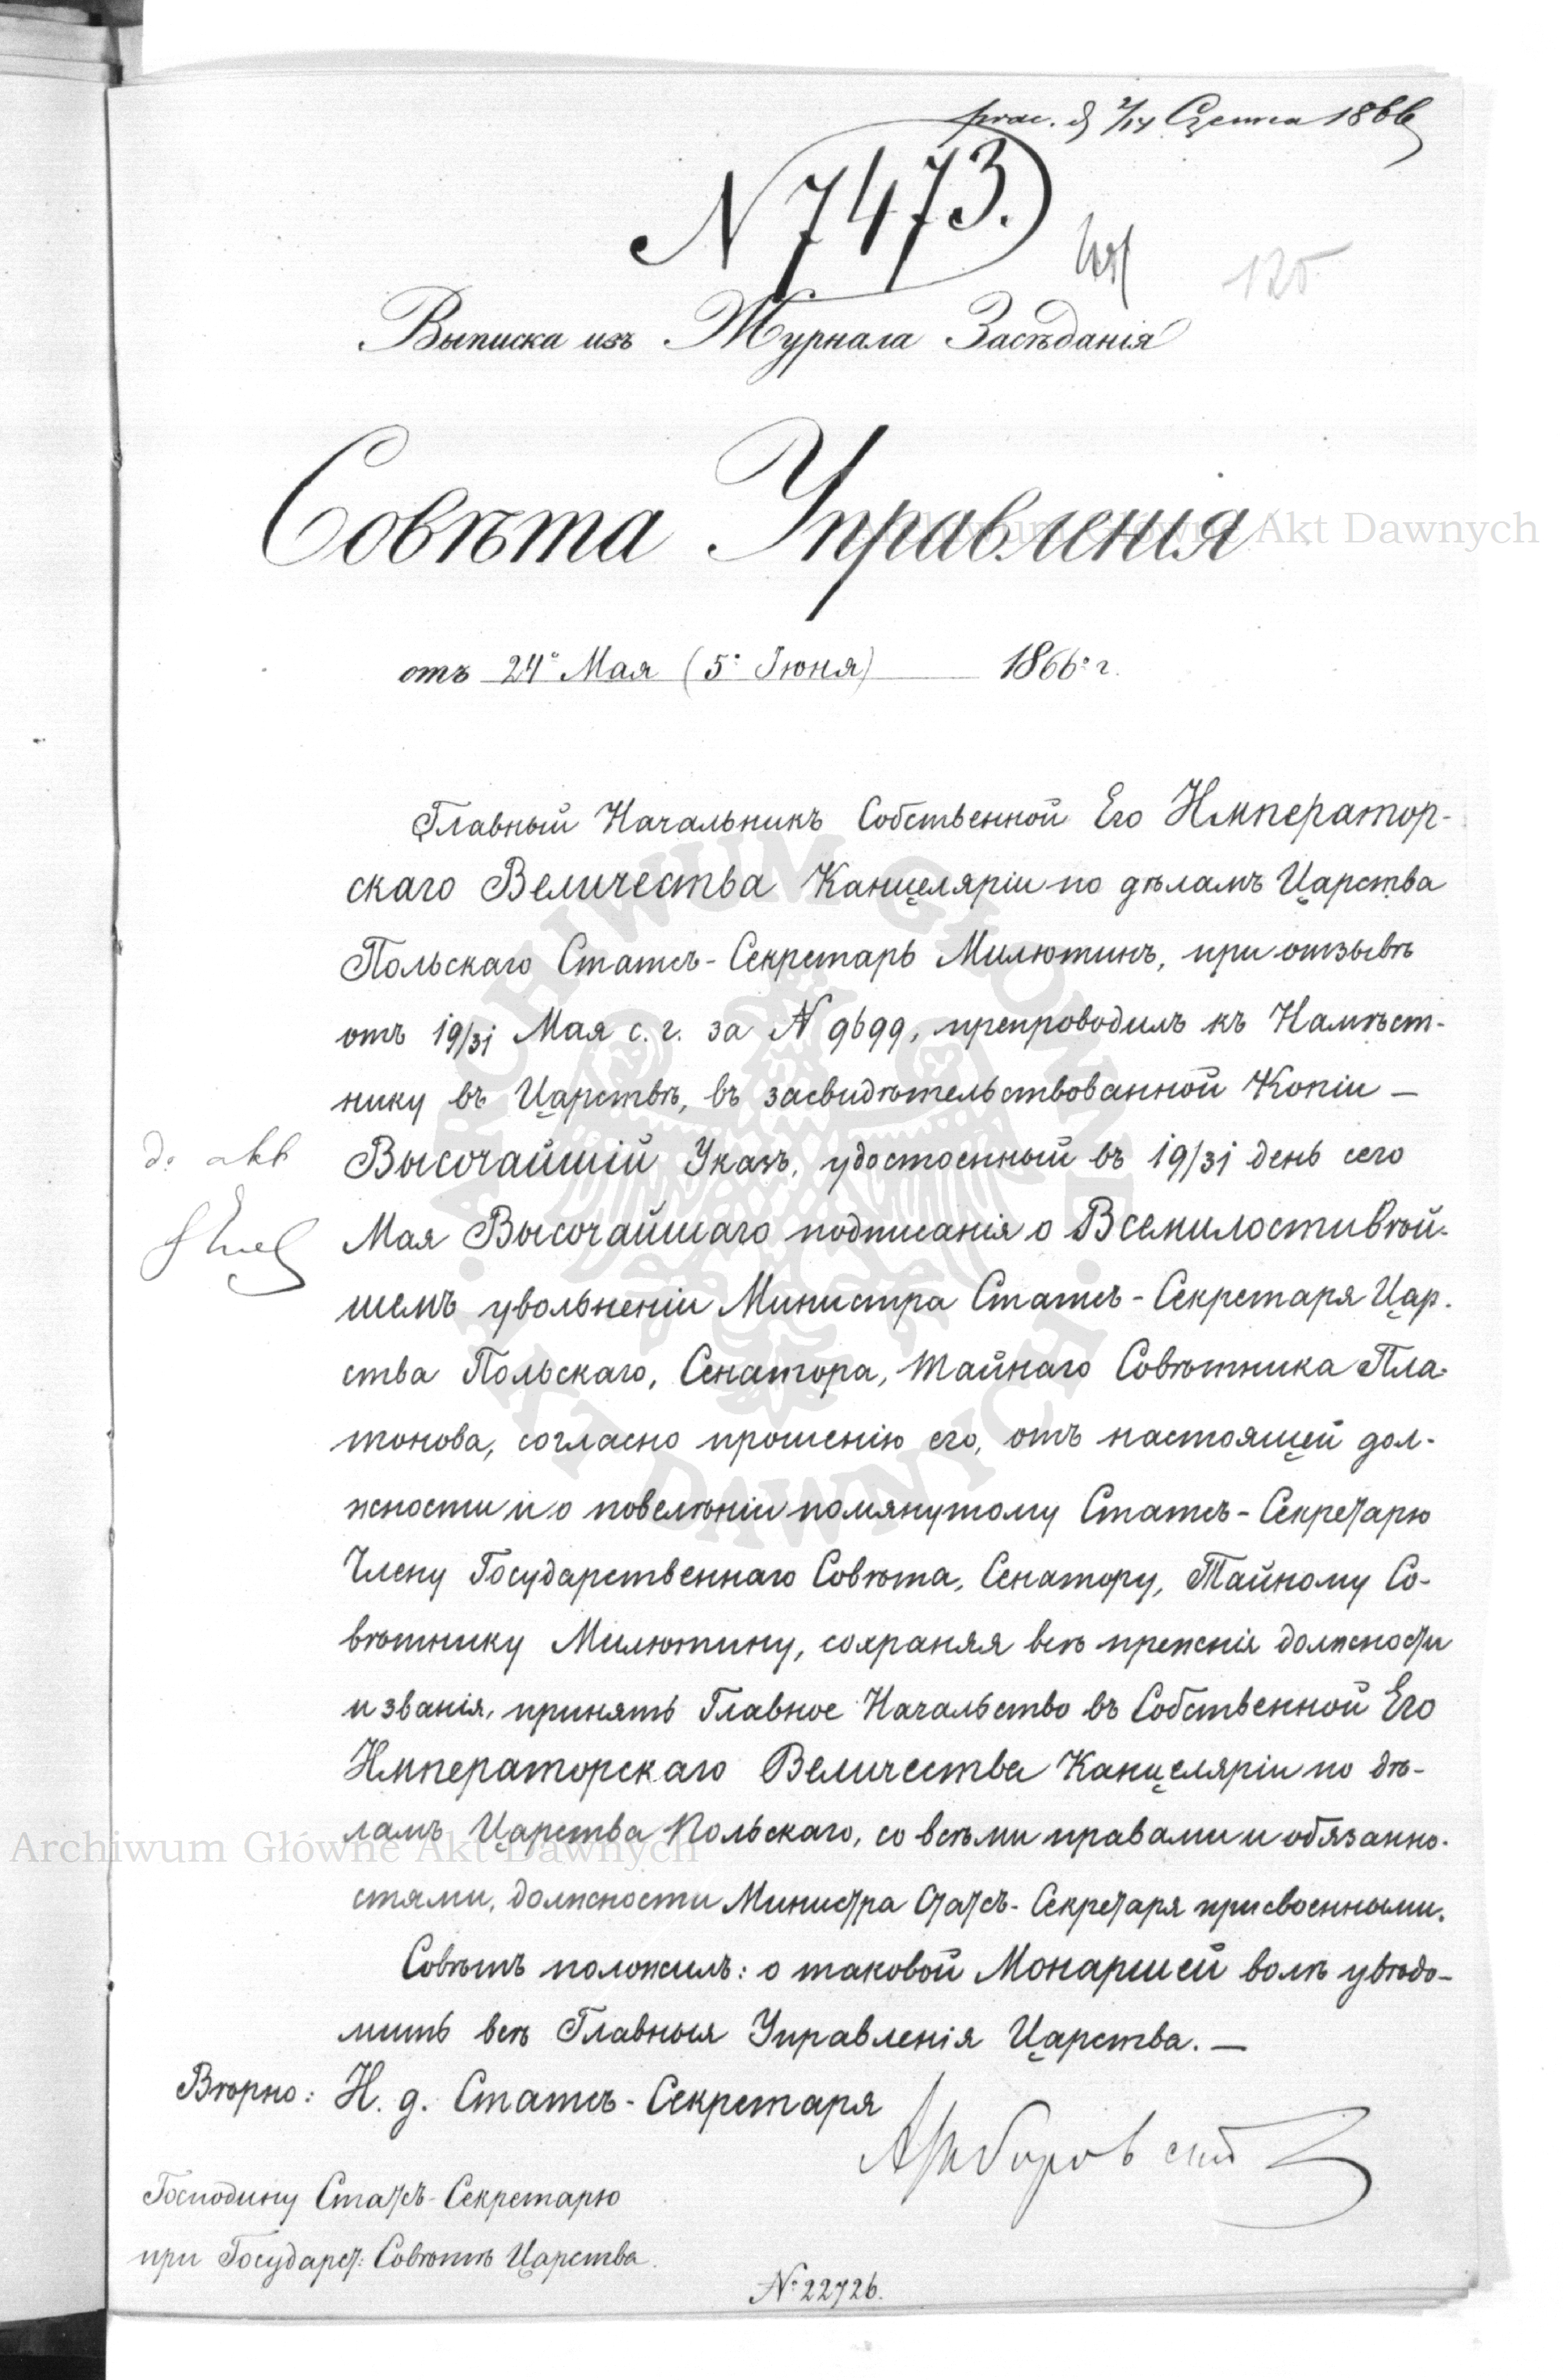 2/14 Czerwca 1866
N 7473.
125
Выписка изъ Журнала Засѣданія
Совѣта Управленія
отъ 24º Мая (5º Іюня) 1866º г.
Главный Начальникъ Собственной Его Император-
скаго Величества Канцеляріи по дѣламъ Царства
Польскаго Статсъ-Секретарь Милютинъ, при отзывѣ
отъ 19/31 Мая с. г. за N 9699, препроводилъ къ Намѣст-
нику въ Царствѣ, въ засвидѣтельствованной Копіи —
do akt
Высочайшій Указъ, удостоенный въ 19/31 день сего
Мая Высочайшаго подписанія о Всемилостивѣй-
шемъ увольненіи Министра Статсъ-Секретаря Цар-
ства Польскаго, Сенатора, Тайнаго Совѣтника Пла-
тонова, согласно прошенію его, отъ настоящей дол-
жности и о повелѣніи помянутому Статсъ-Секретарю
Члену Государственнаго Совѣта, Сенатору, Тайному Со-
вѣтнику Милютину, сохраняя всѣ прежнія должности
и званія, принять Главное Начальство въ Собственной Его
Императорскаго Величества Канцеляріи по дѣ-
ламъ Царства Польскаго, со всѣми правами и обязанно-
стями, должности Министра Статсъ-Секретаря присвоенными.
Совѣтъ положилъ: о таковой Монаршей волѣ увѣдо-
мить всѣ Главныя Управленія Царства. —
Вѣрно: И. д. Статсъ-Секретаря
Господину Статсъ-Секретарю
при Государст: Совѣтѣ Царства.
№ 22726.
Archiwum Główne Akt Dawnych
Archiwum Główne Akt Dawnych
ARCHIWUM GŁÓWNE AKT DAWNYCH